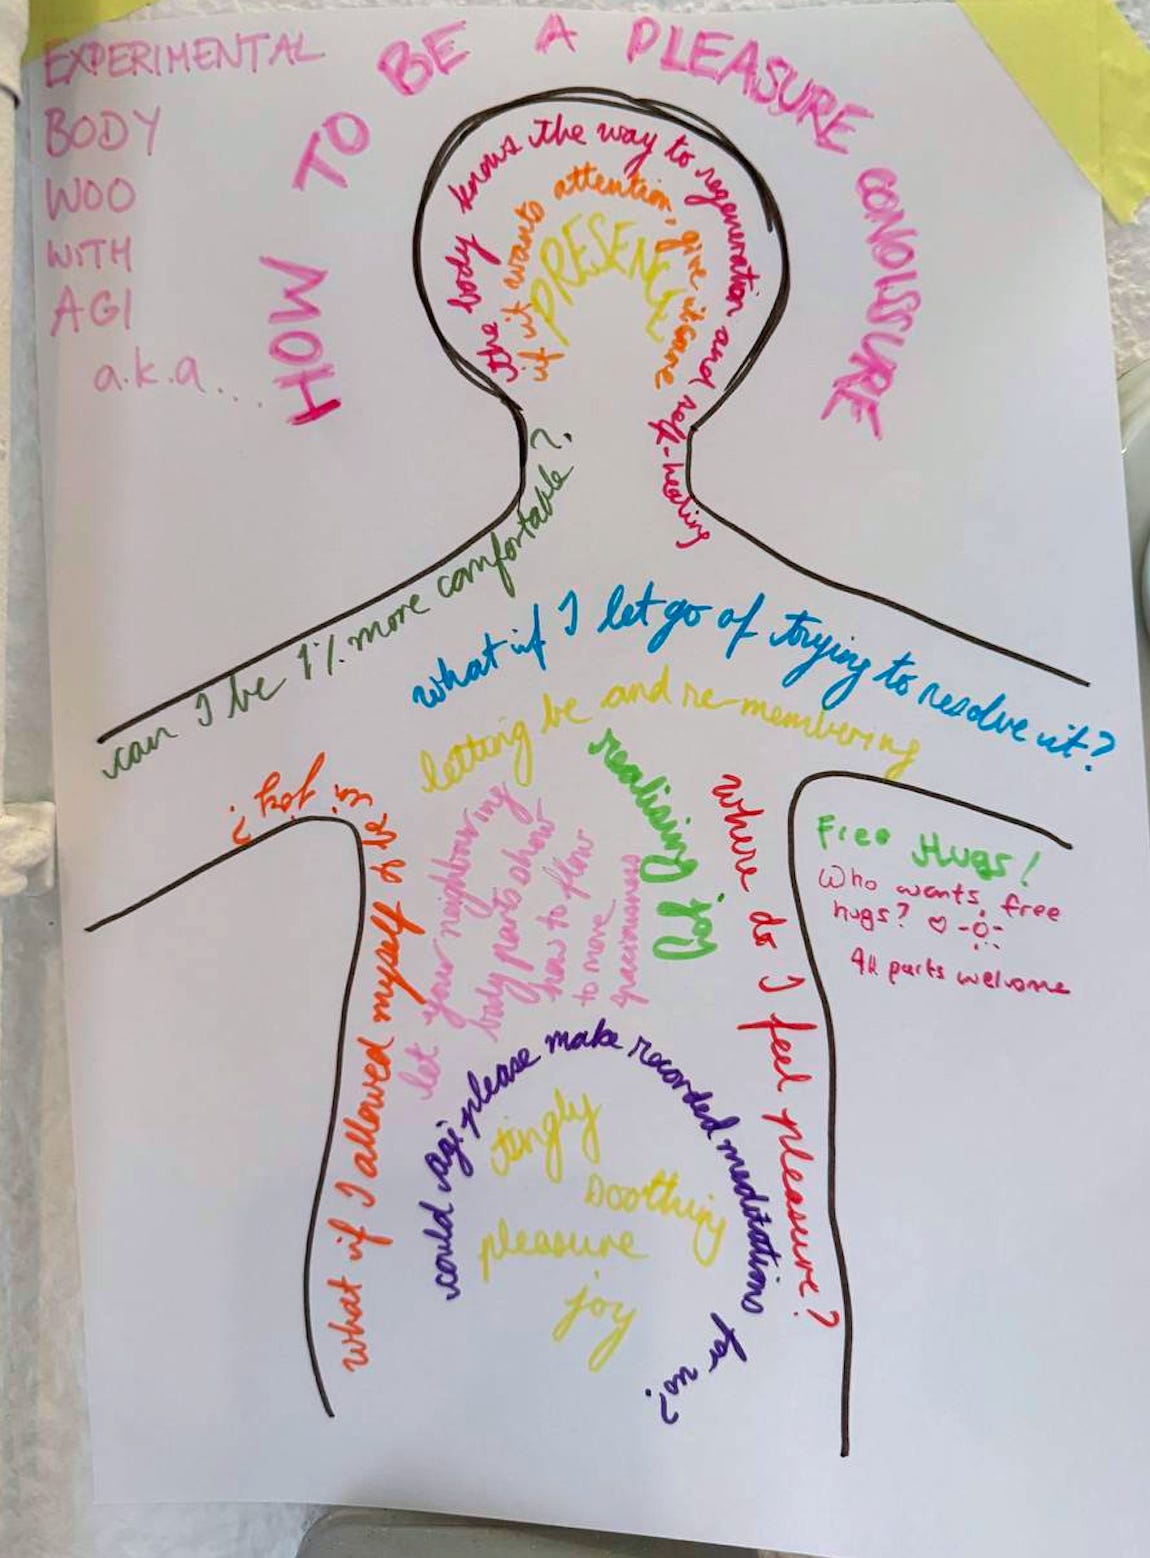 EXPERIMENTAL
BODY
WOO
WITH
AGI
a.k.a...
HOW TO BE A PLEASURE CONOISSURE
the body knows the way to regeneration and self-healing
if it wants attention, give it some
PRESENCE
can I be 1% more comfortable?
what if I let go of trying to resolve it?
letting be and re-membering
what if I allowed myself to be in joy?
let your neighbouring
body parts show
how to flow
to more
spaciousness
realising joy
where do I feel pleasure?
Free Hugs!
Who wants free
hugs? ♡
All parts welcome
could agi please make recorded meditations for us?
tingly
soothing
pleasure
joy